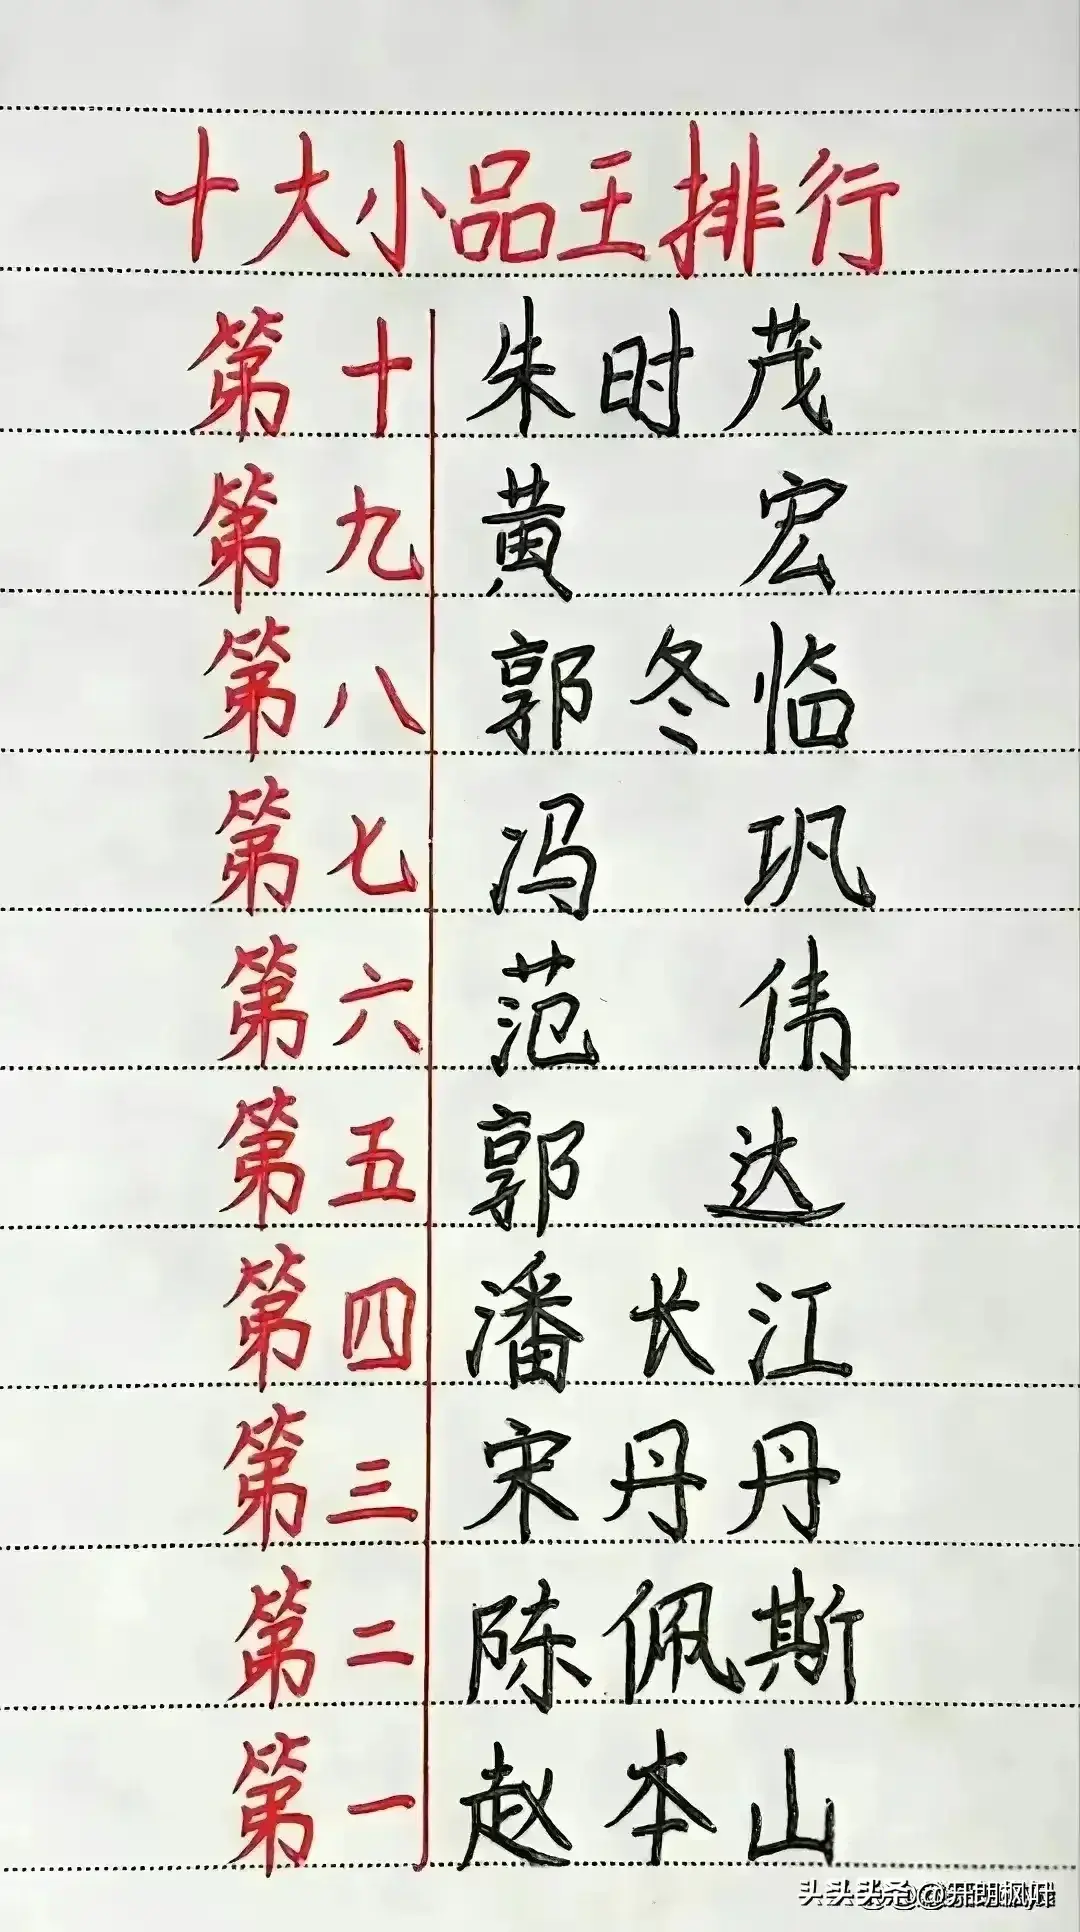 十大小品王排行
第十 朱时茂
第九 黄宏
第八 郭冬临
第七 冯巩
第六 范伟
第五 郭达
第四 潘长江
第三 宋丹丹
第二 陈佩斯
第一 赵本山